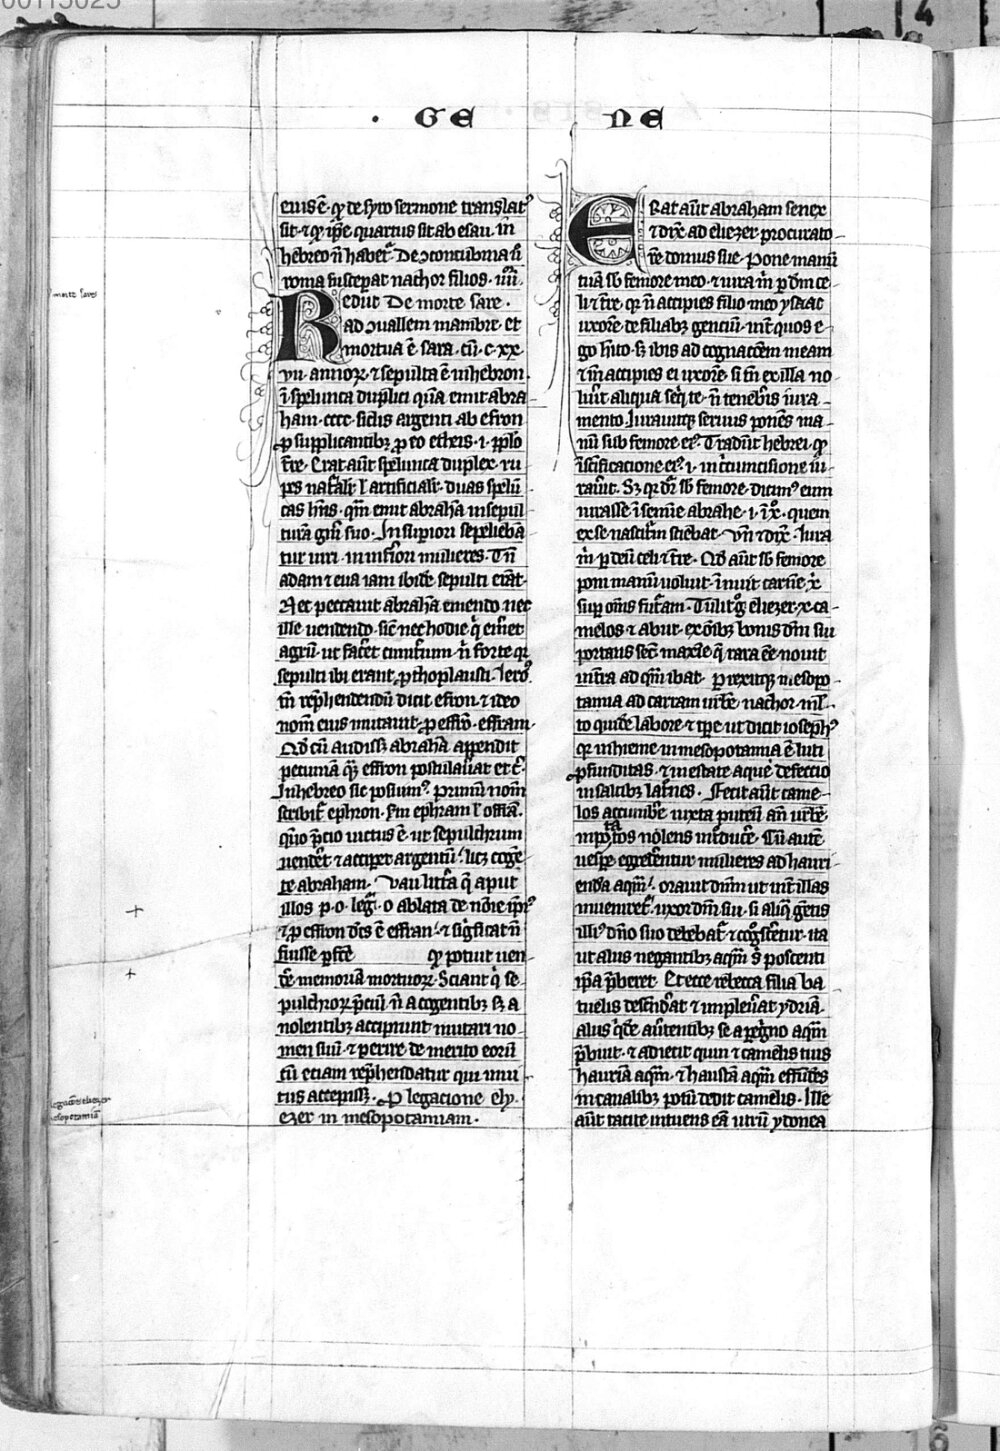 00113023
4
· GE NE
eius ē · qͥ de syro sermone translatꝰ
sit · ⁊ qͥ ip̄e quartus sit ab esau · in
hebreo n̄ habetᷣ · De ↄcontubina sꝰ
roma susceperat nachor filios · iiii ·
Rediit De morte sare ·
ad ↄuallem mambre · et
mortua ē sara · cū · c · xx
vii · annoꝝ · ⁊ sepulta ē in hebron ·
ī spelunca duplici quā emit abra
ham · cccc · siclis argenti ab efron
ꝓ supplicantibꝫ ꝓ eo etheis · i · ꝓplo
t̄re · Erat aūt spelunca duplex · ru
pes nat̄alr̄ l̓ artificialr̄ · duas spelū
cas hn̄s · qm̄ emit abrahā in sepul
turā gn̄i suo · In supiori sepeliebā
tur uiri · in inf̄iori mulieres · Tn̄
adam ⁊ eua iam ibidē sepulti erāt ·
Nec peccauit abrahā emendo nec
ille uendendo · sic̄ nec hodie qͥ emet
agrū · ut facēt cimit̄ium · n̄ forte qꝛ
sepulti ibi erant ꝓthoplausti · Iero
tn̄ rep̄hendendū dicit efron · ⁊ ideo
nom̄ eius mutatūt · ꝓ effrō · effram ·
Qd̄ cū audissꝫ abrahā appendit
pecuniā qꝫ effron postulauat et c̄ ·
In hebreo sic posiumꝰ · primū nom̄
scribit̄ ephron · s̄m ephram l̓ offrā ·
qn̄o p̄cio uictus ē · ut sepulchrum
uendēt ⁊ acciperet argentū · licꝫ coge
te abraham · Uau litt̄a q̄ aput
illos ꝓ · o · legit̄ · o ablata de noīe ip̄iꝰ
⁊ ꝓ effron dc̄s ē effran · ⁊ sig̓ficat n̄
fuisse ꝑfc̄e qͥ potuit uen
d̄e memoriā mortuoꝝ · Sciant qͥ se
pulchroꝝ p̄ciū n̄ a cogentibꝫ sꝫ a
nolentibꝫ accipiunt mutari no
men suū · ⁊ perire de merito eorū
cū etiam rep̄hendatur qui inui
tus accepissꝫ · De legacione ely
ezer in mesopotamiam ·
Erat aūt abraham senex
⁊ dix̄ ad eliezer procurato
rē domus sue · Pone manū
tuā sb̄ femore meo · ⁊ iura m̄ ꝑ dm̄ ce
li ⁊ t̄re · qꝛ n̄ accipies filio meo ysaac
uxorē de filiabꝫ gentiū · int̄ quos e
go h̄ito · sꝫ ibis ad cognacōem meam
⁊ in̄ accipies ei uxorē · si tn̄ ex illa no
lūit aliqua seqͥ te · n̄ teneb̄is iura
mento · Iurauitqꝫ seruus ponēs ma
nū sub femore eiꝰ · Tradūt hebrei · qͥ
ī sc̄ificacione eiꝰ · i · in circumcisione iu
rauit · Sꝫ qꝛ dr̄ sb̄ femore · dicimꝰ eum
iurasse ī semīe abrahe · i · ī xͦ · quem
ex se nascit̄m sciebat · Vn̄ ⁊ dix̄ · Iura
m̄ · ꝑ deū celi ⁊ t̄re · Qd̄ aūt sb̄ femore
poni manū uoluit · īnuit carnē xͥ
suꝑ om̄s fut̄am · Tulit gͦ eliezer · x · ca
melos · ⁊ abiit · ex oībꝫ bonis dn̄i sui
portans secū · maxīe q̄ rara eē nouit
in t̄ra ad qm̄ ibat · ꝑrexitqꝫ mesopo
tamia ad carram urbē · nachor · ml̄
to quidē labore · ⁊ tp̄e ut dicit iosephꝰ
qꝛ in hieme in mesopotamia ē luti
ꝓfunditas · ⁊ in estate aque defectio
in saltibꝫ lat̄nes · Fecit aūt came
los accumbē iuxta puteū an̄ urbē
inpotatos nolens int̄ducē · Cū autē
uesꝑe egrederentur mulieres ad hauri
endā aqm̄ · orauit dn̄m ut int̄ illas
inueniret̄ · uxor dn̄i sui · si aliqͣ gēns
illiꝰ dn̄o suo debebat̄ · ⁊ cogͦsc̄etur · ita
ut aliis negantibꝫ aqm̄ s̄ poscenti
ip̄a p̄beret · Et ecce rebecca filia ba
tuelis descend̄at ⁊ impleuat ydriā ·
aliis qͥdē aūtentibꝫ se a pegͥno aqm̄
p̄buit · ⁊ adiecit quin ⁊ camelis tuis
hauriā aqm̄ · ⁊ haustā aqm̄ effundēs
in canalibꝫ potū dedit camelis · Ille
aūt tacite intuens eā utrū ydonea